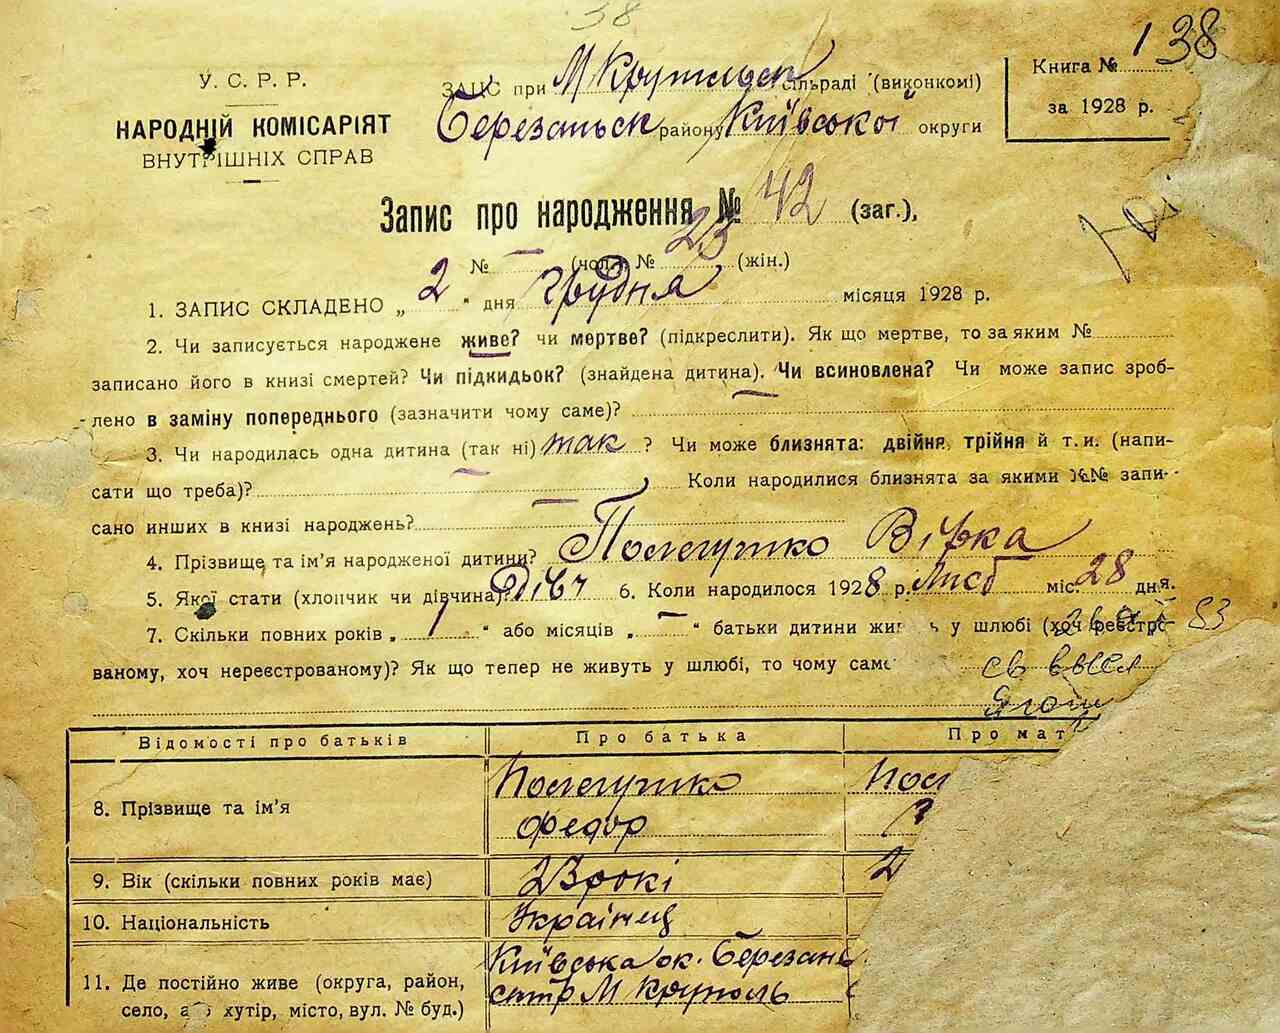 38
У. С. Р. Р.
НАРОДНІЙ КОМІСАРІЯТ
ВНУТРІШНІХ СПРАВ
ЗАПС при М Крупільск сільраді (виконкомі)
Березаньск району Київської округи
Книга № 1
за 1928 р.
138
Запис про народження № 42 (заг.),
№ — (чол.) № 23 (жін.)
1. ЗАПИС СКЛАДЕНО „ 2 “ дня грудня місяця 1928 р.
2. Чи записується народжене живе? чи мертве? (підкреслити). Як що мертве, то за яким №
записано його в книзі смертей? Чи підкидьок? (знайдена дитина). Чи всиновлена? Чи може запис зроб-
лено в заміну попереднього (зазначити чому саме)? —
3. Чи народилась одна дитина (так ні) так ? Чи може близнята: двійня, трійня й т. и. (напи-
сати що треба)? — Коли народилися близнята за якими №№ запи-
сано инших в книзі народжень? —
4. Прізвище та ім’я народженої дитини? Полегушко Вірка
5. Якої стати (хлопчик чи дівчина)? Дівч 6. Коли народилося 1928 р. Лист міс. 28 дня.
7. Скільки повних років „ 1 “ або місяців „ — “ батьки дитини жи у шлюбі (хоч реєстро-
ваному, хоч нереєстрованому)? Як що тепер не живуть у шлюбі, то чому саме
83
Відомості про батьків Про батька Про мат
8. Прізвище та ім’я Полегушко Пол
Федор
9. Вік (скільки повних років має) 23 рокі 2
10. Національність Українец
11. Де постійно живе (округа, район, Київська ок. Березань
село, або хутір, місто, вул. № буд.) М Круполь